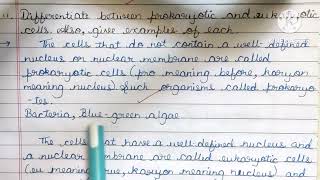 11. Differentiate between prokaryotic and eukaryotic
cells. Also, give examples of each.
→ The cells that do not contain a well-defined
nucleus or nuclear membrane are called
prokaryotic cells (pro meaning before, karyon
meaning nucleus) Such organisms called prokaryo
-tes.
Bacteria, Blue-green algae
The cells that have a well-defined nucleus and
a nuclear membrane are called eukaryotic cells
(eu meaning true, karyon meaning nucleus) and